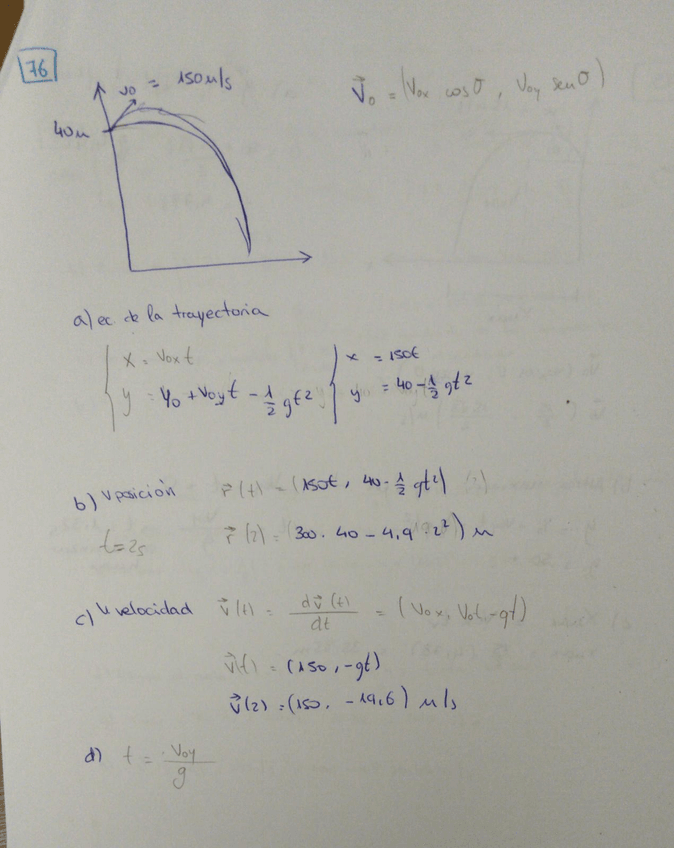 76
v0 = 150 m/s
V⃗₀ = (V₀ₓ cosθ, V₀y senθ)
40m
a) ec. de la trayectoria
{ x = V₀ₓt { x = 150t
{ y = y₀ + V₀yt - 1/2 gt² { y = 40 - 1/2 gt²
b) v posición r⃗(t) = (150t, 40 - 1/2 gt²)
t=2s r⃗(2) = (300. 40 - 4,9 · 2²) m
c) v velocidad v⃗(t) = dv⃗(t)/dt = (V₀ₓ, V₀t, -gt)
v⃗(t) = (150, -gt)
v⃗(2) = (150. -19,6) m/s
d) t = V₀y/g